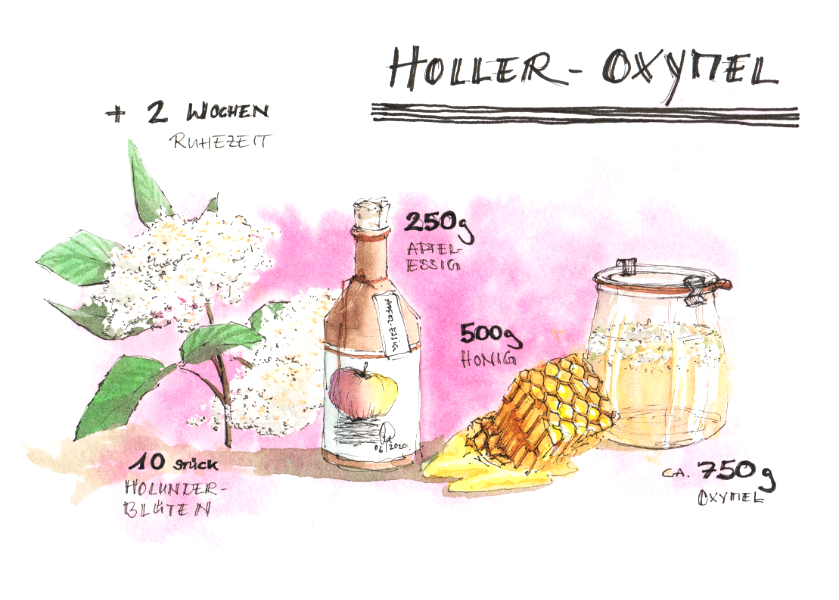 HOLLER - OXYMEL
+ 2 WOCHEN
RUHEZEIT
250g
APFEL-
ESSIG
APFELESSIG
500g
HONIG
06/2020
10 STÜCK
HOLUNDER-
BLÜTEN
CA. 750g
OXYMEL